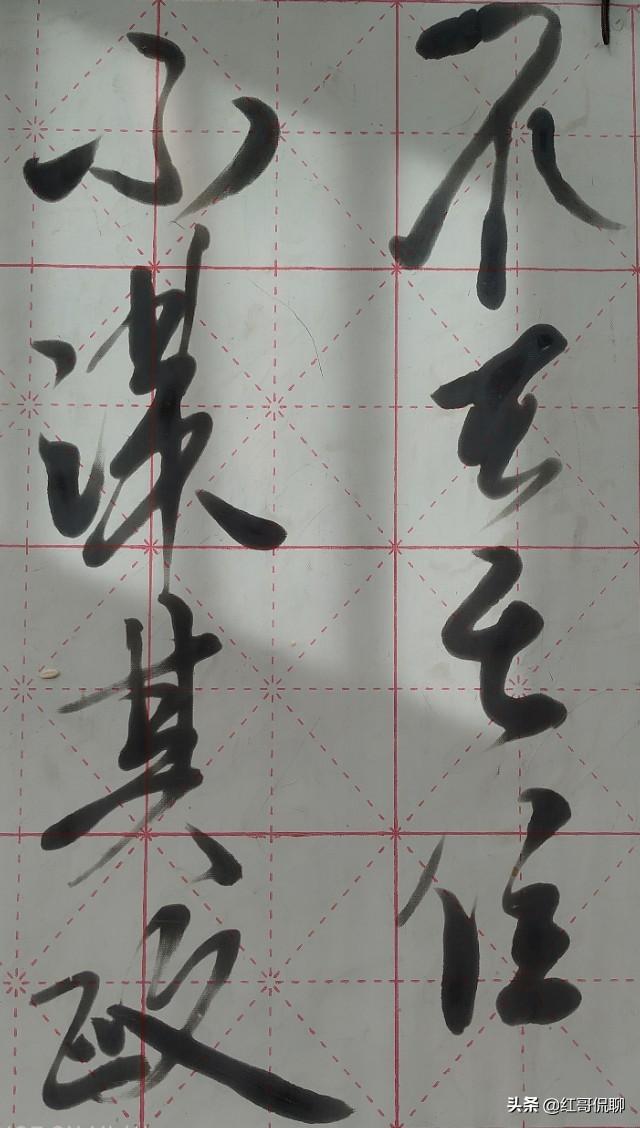 不在其位
不谋其政
头条 @红哥侃聊